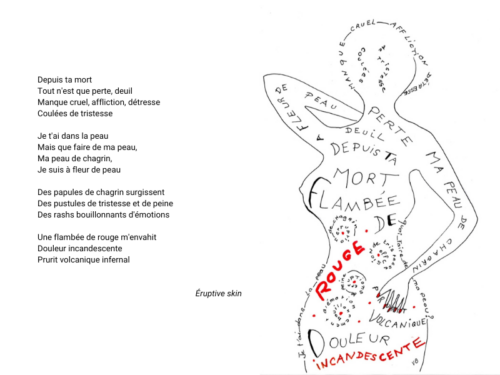 Depuis ta mort
Tout n'est que perte, deuil
Manque cruel, affliction, détresse
Coulées de tristesse
Je t'ai dans la peau
Mais que faire de ma peau,
Ma peau de chagrin,
Je suis à fleur de peau
Des papules de chagrin surgissent
Des pustules de tristesse et de peine
Des rashs bouillonnants d'émotions
Une flambée de rouge m'envahit
Douleur incandescente
Prurit volcanique infernal
Éruptive skin
MANQUE CRUEL AFFLICTION DÉTRESSE
Coulées de tristesse
A FLEUR DE PEAU
PERTE
DEUIL
DEPUIS TA
MORT
FLAMBÉE
DE
ROUGE
MA PEAU DE CHAGRIN
Je t'ai dans la peau
ma peau?
VOLCANIQUE
DOULEUR
INCANDESCENTE